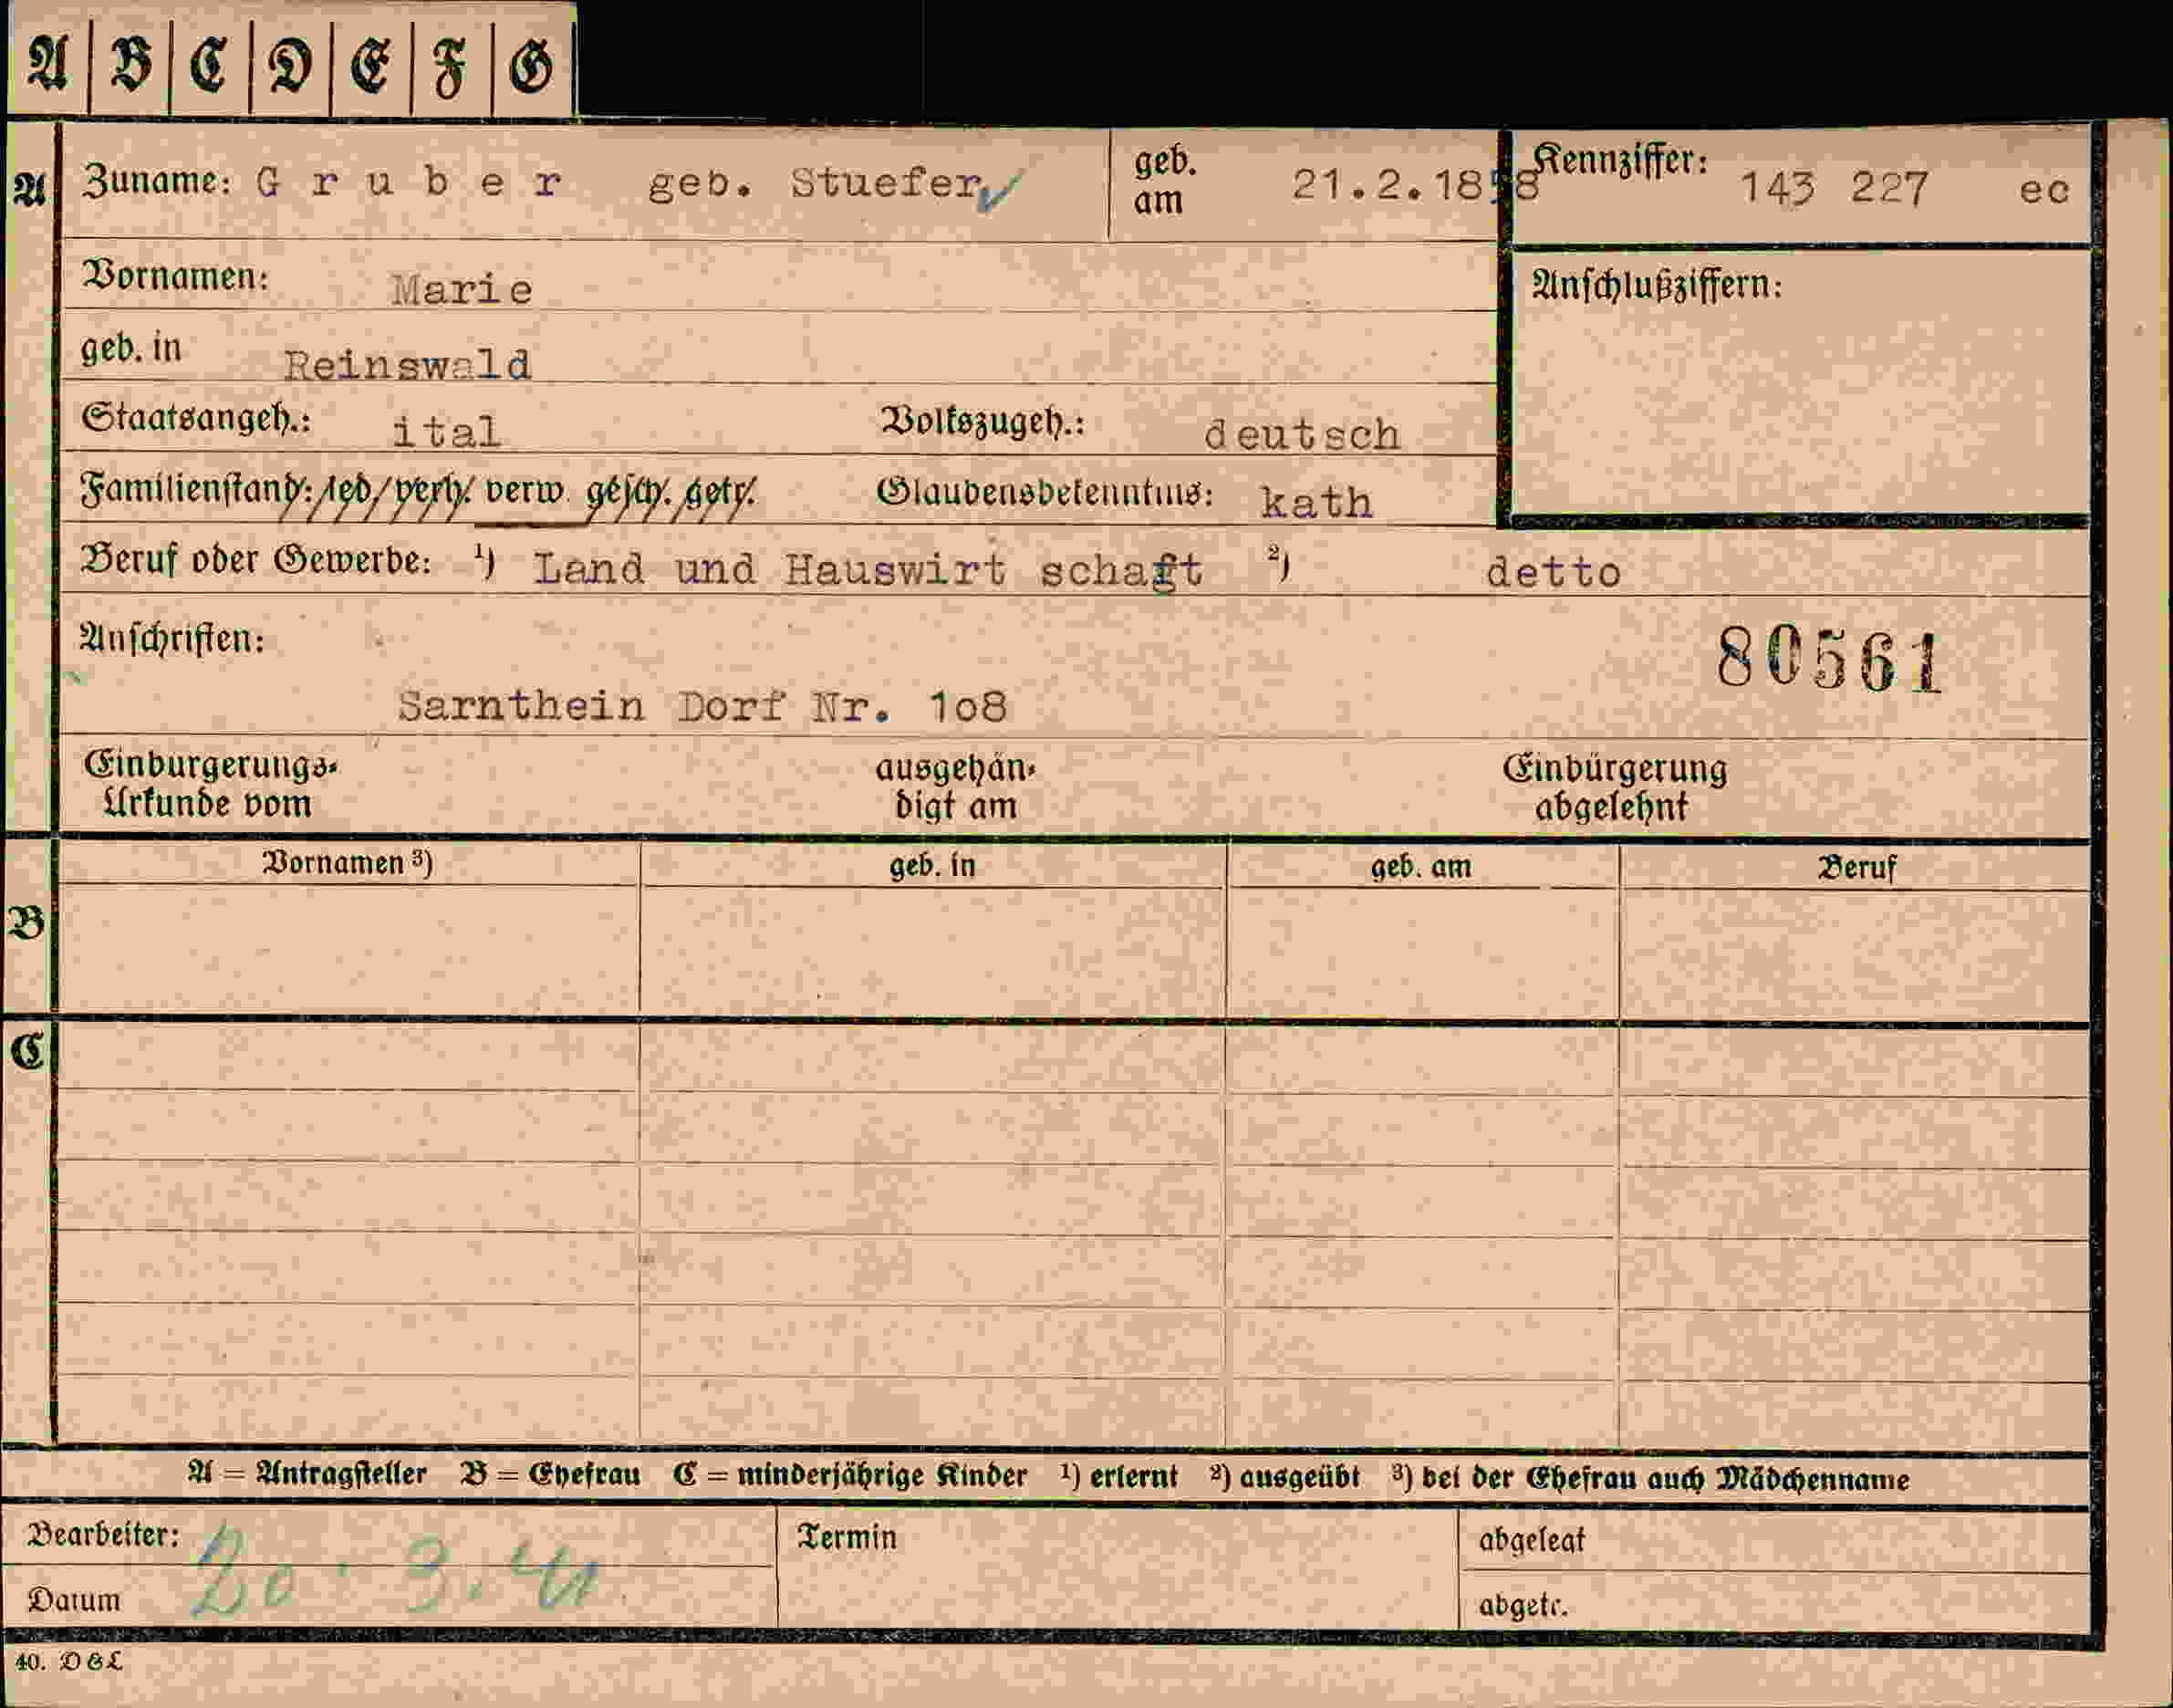 A B C D E F G
A Zuname: Gruber geb. Stuefer geb. am 21.2.18 8 Kennziffer: 143 227 ec
Vornamen: Marie
Anschlußziffern:
geb. in Reinswald
Staatsangeh.: ital Volkszugeh.: deutsch
Familienstand: led. verh. verw. gesch. getr. Glaubensbekenntnis: kath
Beruf oder Gewerbe: 1) Land und Hauswirt schaft 2) detto
Anschriften: 80561
Sarnthein Dorf Nr. 1o8
Einbürgerungs- ausgehän- Einbürgerung
Urkunde vom digt am abgelehnt
Vornamen 3) geb. in geb. am Beruf
B
C
A = Antragsteller B = Ehefrau C = minderjährige Kinder 1) erlernt 2) ausgeübt 3) bei der Ehefrau auch Mädchenname
Bearbeiter: Termin abgelegt
20. 3. 41
Datum abgetr.
40. D & L